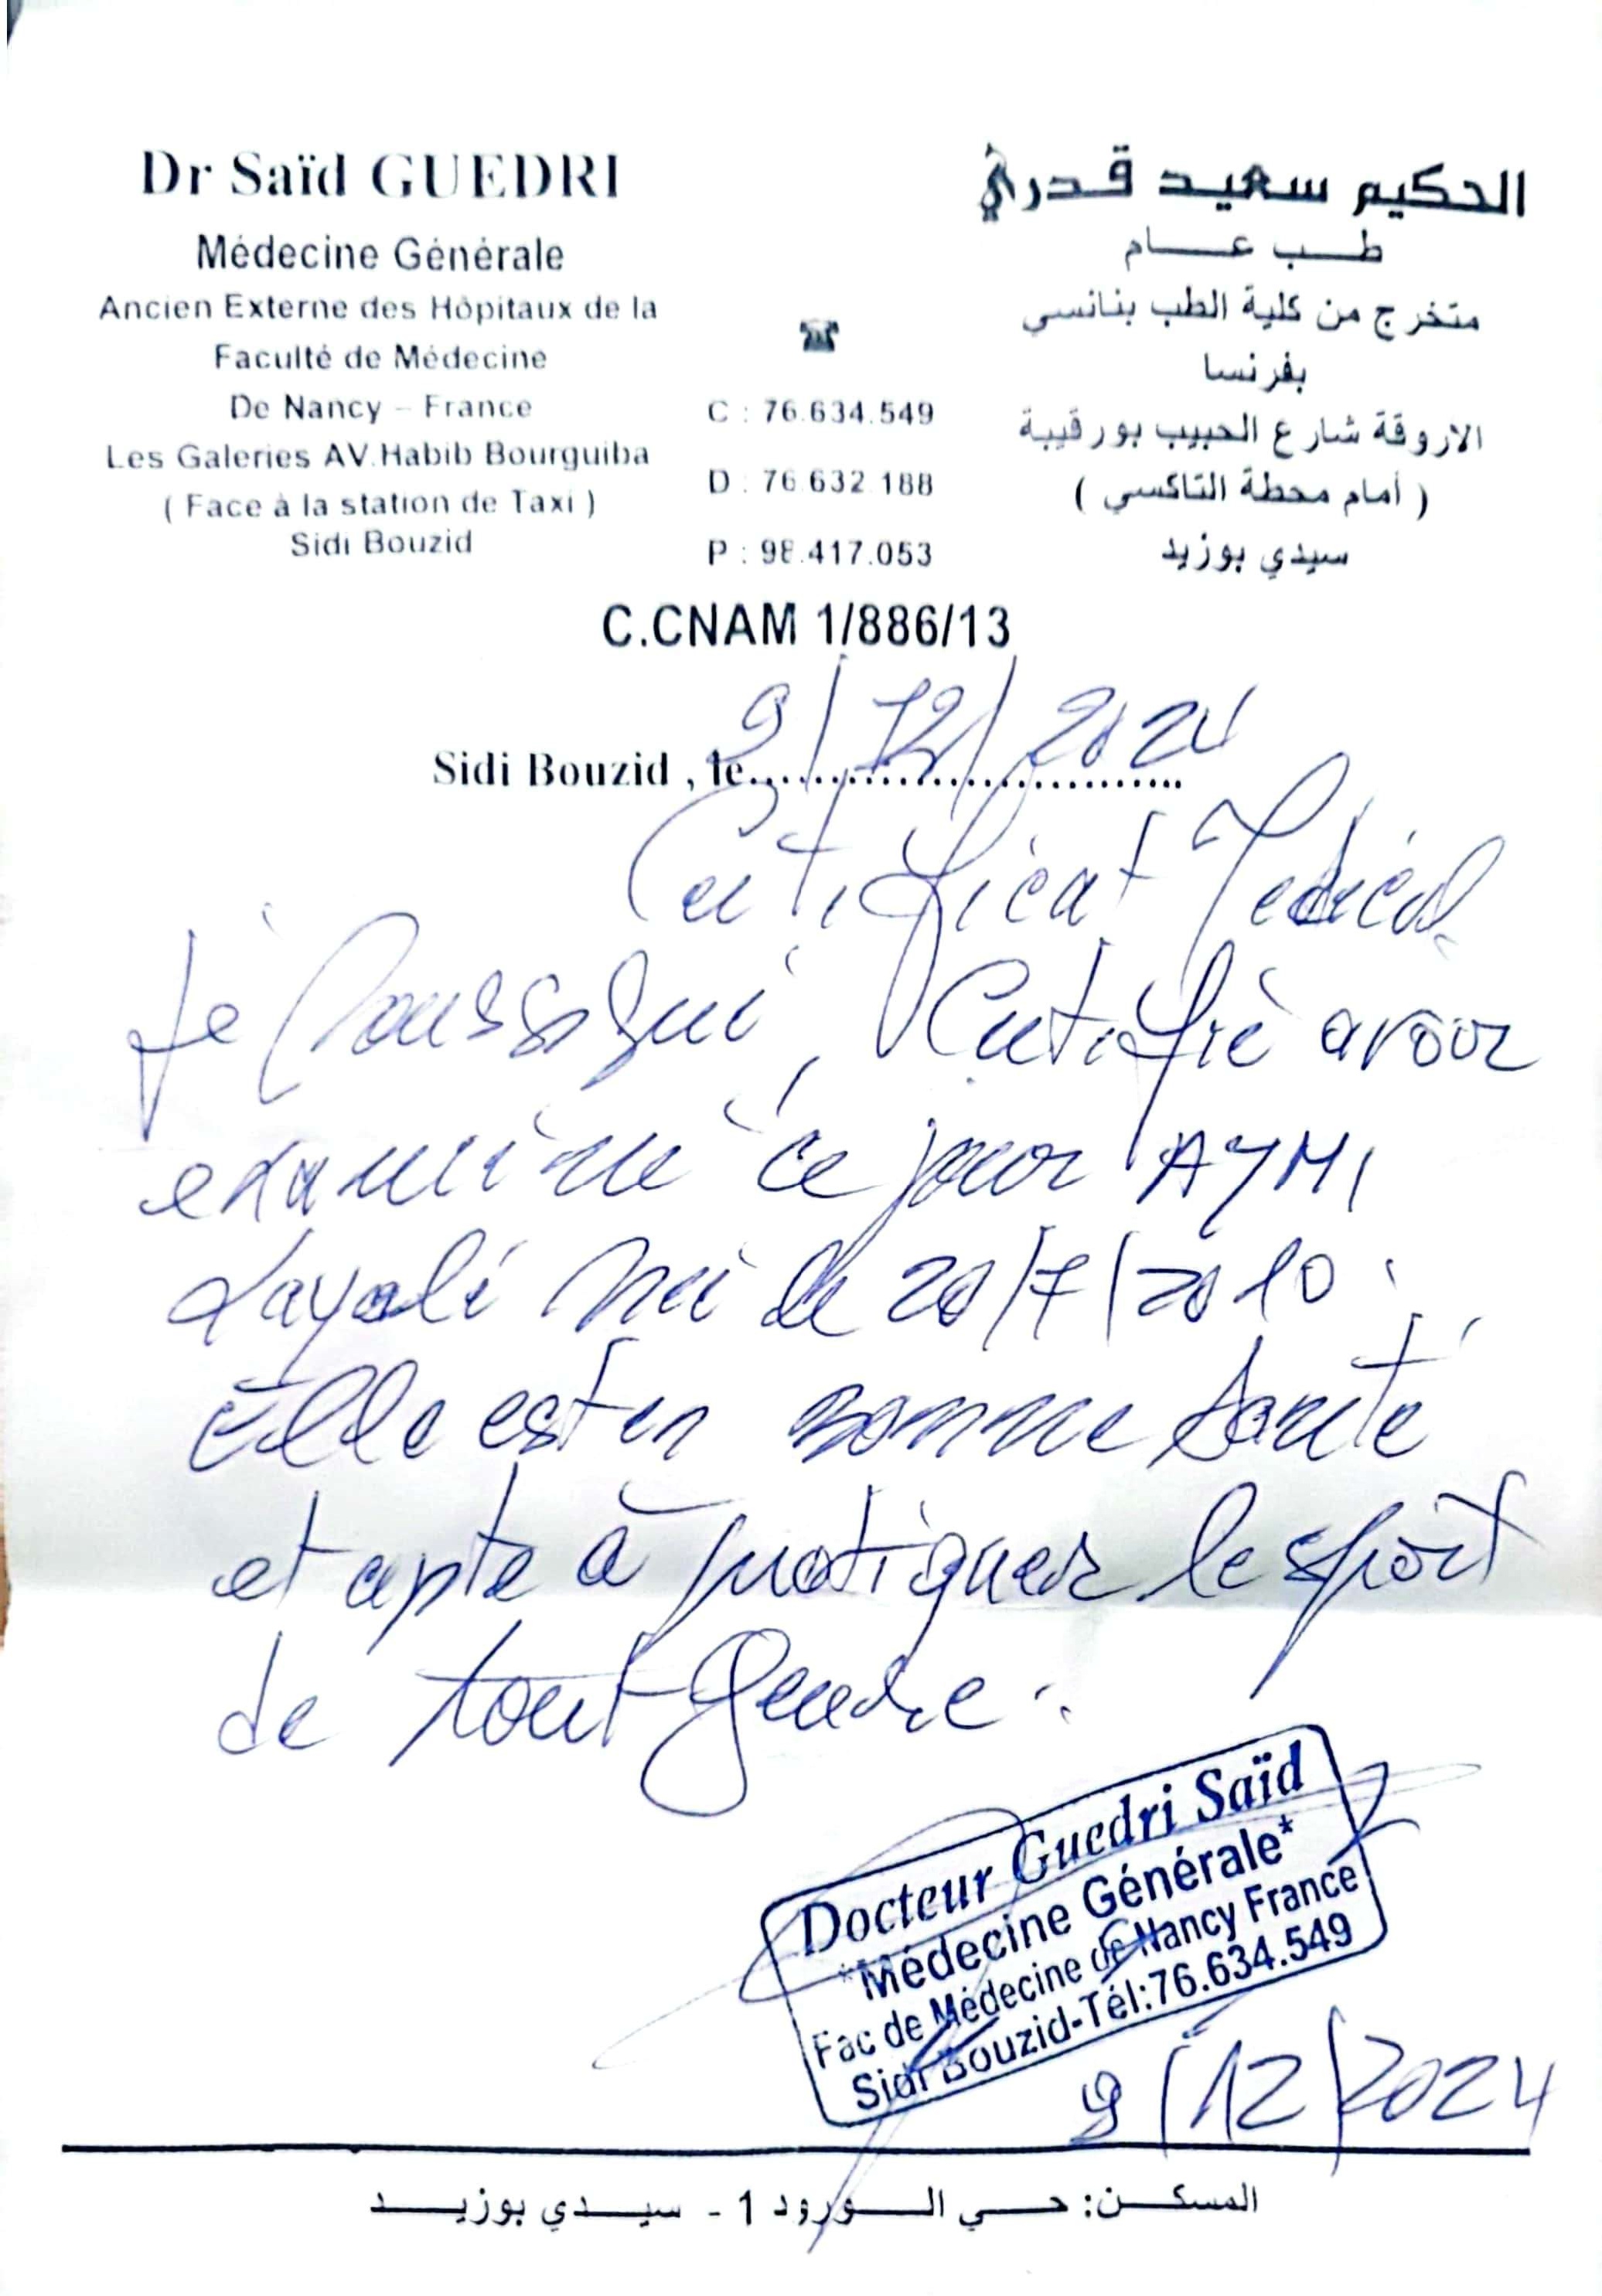 Dr Saïd GUEDRI
Médecine Générale
Ancien Externe des Hôpitaux de la
Faculté de Médecine
De Nancy – France
Les Galeries AV.Habib Bourguiba
( Face à la station de Taxi )
Sidi Bouzid
☎
C : 76.634.549
D : 76.632.188
P : 98.417.053
الحكيم سعيد قدري
طب عام
متخرج من كلية الطب بنانسي
بفرنسا
الاروقة شارع الحبيب بورقيبة
( أمام محطة التاكسي )
سيدي بوزيد
C.CNAM 1/886/13
Sidi Bouzid , le 9/12/2024
Certificat Médical
Je soussigné, Certifie avoir
examiné ce jour AYMI
Layali née le 20/7/2010.
elle est en bonne santé
et apte à pratiquer le sport
de tout genre.
Docteur Guedri Saïd
*Médecine Générale*
Fac de Médecine de Nancy France
Sidi Bouzid-Tél:76.634.549
9/12/2024
المسكن: حي الورود 1 - سيدي بوزيد